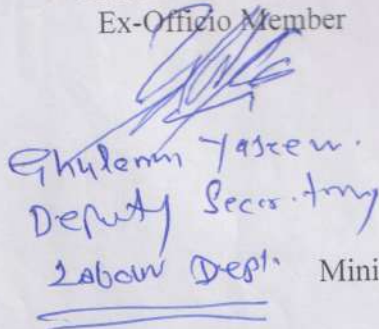 Ex-Officio Member
Ghulam Yaseen.
Deputy Secretary
Labour Deptt. Mini